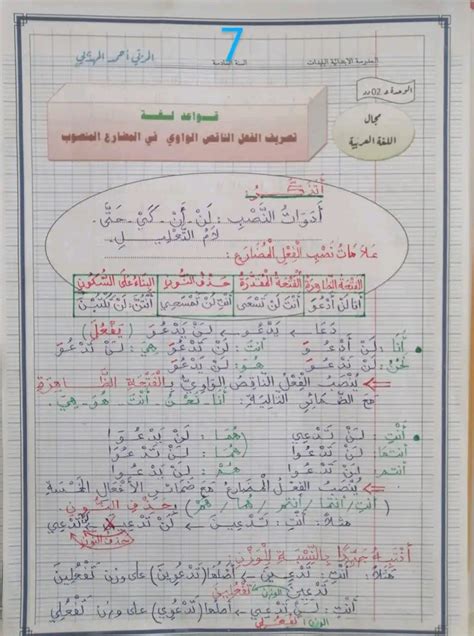 7
المربي أحمد المهذبي
السنة السادسة
المدرسة الابتدائية
الوحدة 02
مجال
اللغة العربية
قواعد لغة
تصريف الفعل الناقص الواوي في المضارع المنصوب
أتذكّر:
أَدَوَاتُ النَّصْبِ: لَنْ - أَنْ - كَيْ - حَتَّى -
لَامُ التَّعْلِيلِ.
عَلَامَاتُ نَصْبِ الْفِعْلِ الْمُضَارِعِ:
الفتحة الظاهرة الفتحة المقدّرة حذف النون البناء على السكون
أنا لن أدعوَ أنت لن تسعى أنتِ لن تسعي أنتنّ: لن تكتبن
دَعَا ← يَدْعُو ← لَنْ يَدْعُوَ (يَفْعُلَ)
أَنَا: لَنْ أَدْعُوَ أنتَ: لَنْ تَدْعُوَ هِيَ: لَنْ تَدْعُوَ
نَحْنُ: لَنْ نَدْعُوَ هُوَ: لَنْ يَدْعُوَ
يُنْصَبُ الْفِعْلُ النَّاقِصُ الْوَاوِيُّ بِالْفَتْحَةِ الظَّاهِرَةِ
مَعَ الضَّمَائِرِ التَّالِيَةِ: أنا - نحنُ - أنتَ - هُوَ - هِيَ.
أَنْتِ: لَنْ تَدْعِي هُمَا: لَنْ يَدْعُوَا
أنتما: لَنْ تَدْعُوَا لَنْ تَدْعُوَا
أنتم: لَنْ تَدْعُوا هُمْ: لَنْ يَدْعُوا
يُنْصَبُ الْفِعْلُ الْمُضَارِعُ مَعَ ضَمَائِرِ الْأَفْعَالِ الْخَمْسَةِ
(أنتِ / أنتما / أنتم / هما / هم) بِحَذْفِ النُّونِ
مثلا: أنتِ: تَدْعِينَ ← لَنْ تَدْعِي
حذف النون
أَنْتَبِهُ جَيِّدًا بِالنِّسْبَةِ لِلْوَزْنِ:
مثلا: أنتِ: تَدْعِينَ ← أصلها (تَدْعُوِينَ) على وزن تَفْعُلِينَ
تدعين الوزن تَفْعِينَ
أنتِ: لَنْ تَدْعِي ← أصلها (تَدْعُوِي) على وزن تَفْعُلِي
الوزن